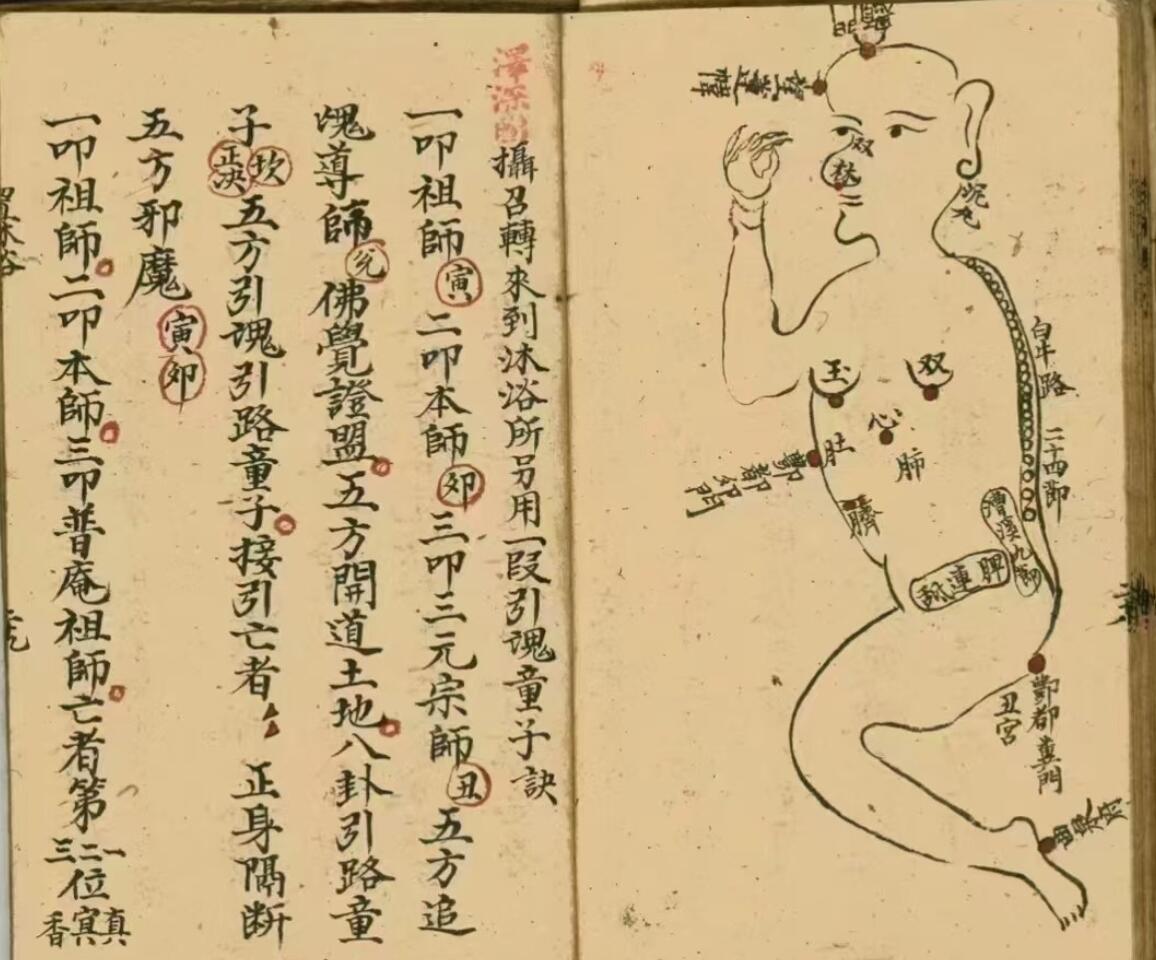 泥丸
白牛路
二十四節
双
玉
心
肺
肚
臍
漕溪九節
脾連舐
酆都糞門
丑宮
澤深圖
攝召轉來到沐浴所另用一段引魂童子訣
一叩祖師寅二叩本師卯三叩三元宗師丑五方追
魂導師兊佛覺證盟五方開道土地八卦引路童
子坎正决五方引魂引路童子接引亡者正身隔断
五方邪魔寅卯
一叩祖師二叩本師三叩普庵祖師亡者第一二三位真寅香